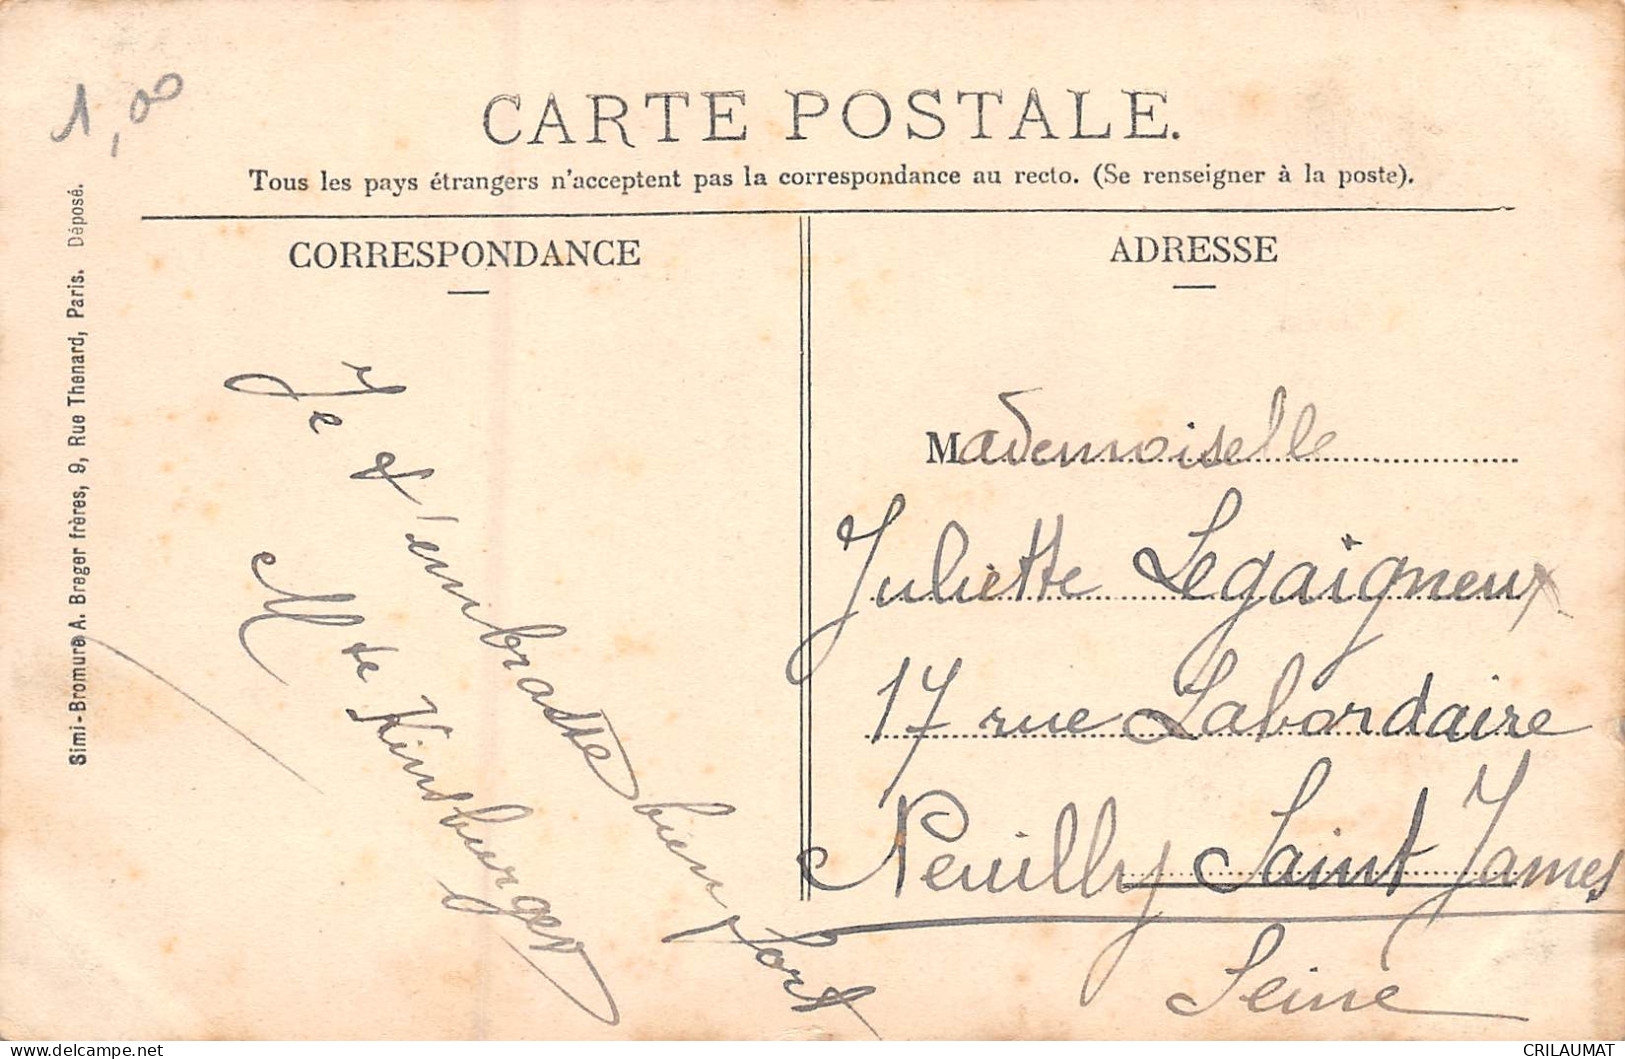 1,00
CARTE POSTALE.
Tous les pays étrangers n'acceptent pas la correspondance au recto. (Se renseigner à la poste).
CORRESPONDANCE
ADRESSE
Simi-Bromure A. Breger frères, 9, Rue Thenard, Paris. Déposé.
Je t'embrasse bien fort
Mte Kinsburger
Mademoiselle
Juliette Legaigneux
17 rue Labordaire
Neuilly Saint James
Seine
CRILAUMAT